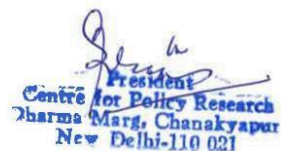 President
Centre for Policy Research
Dharma Marg, Chanakyapur
New Delhi-110 021